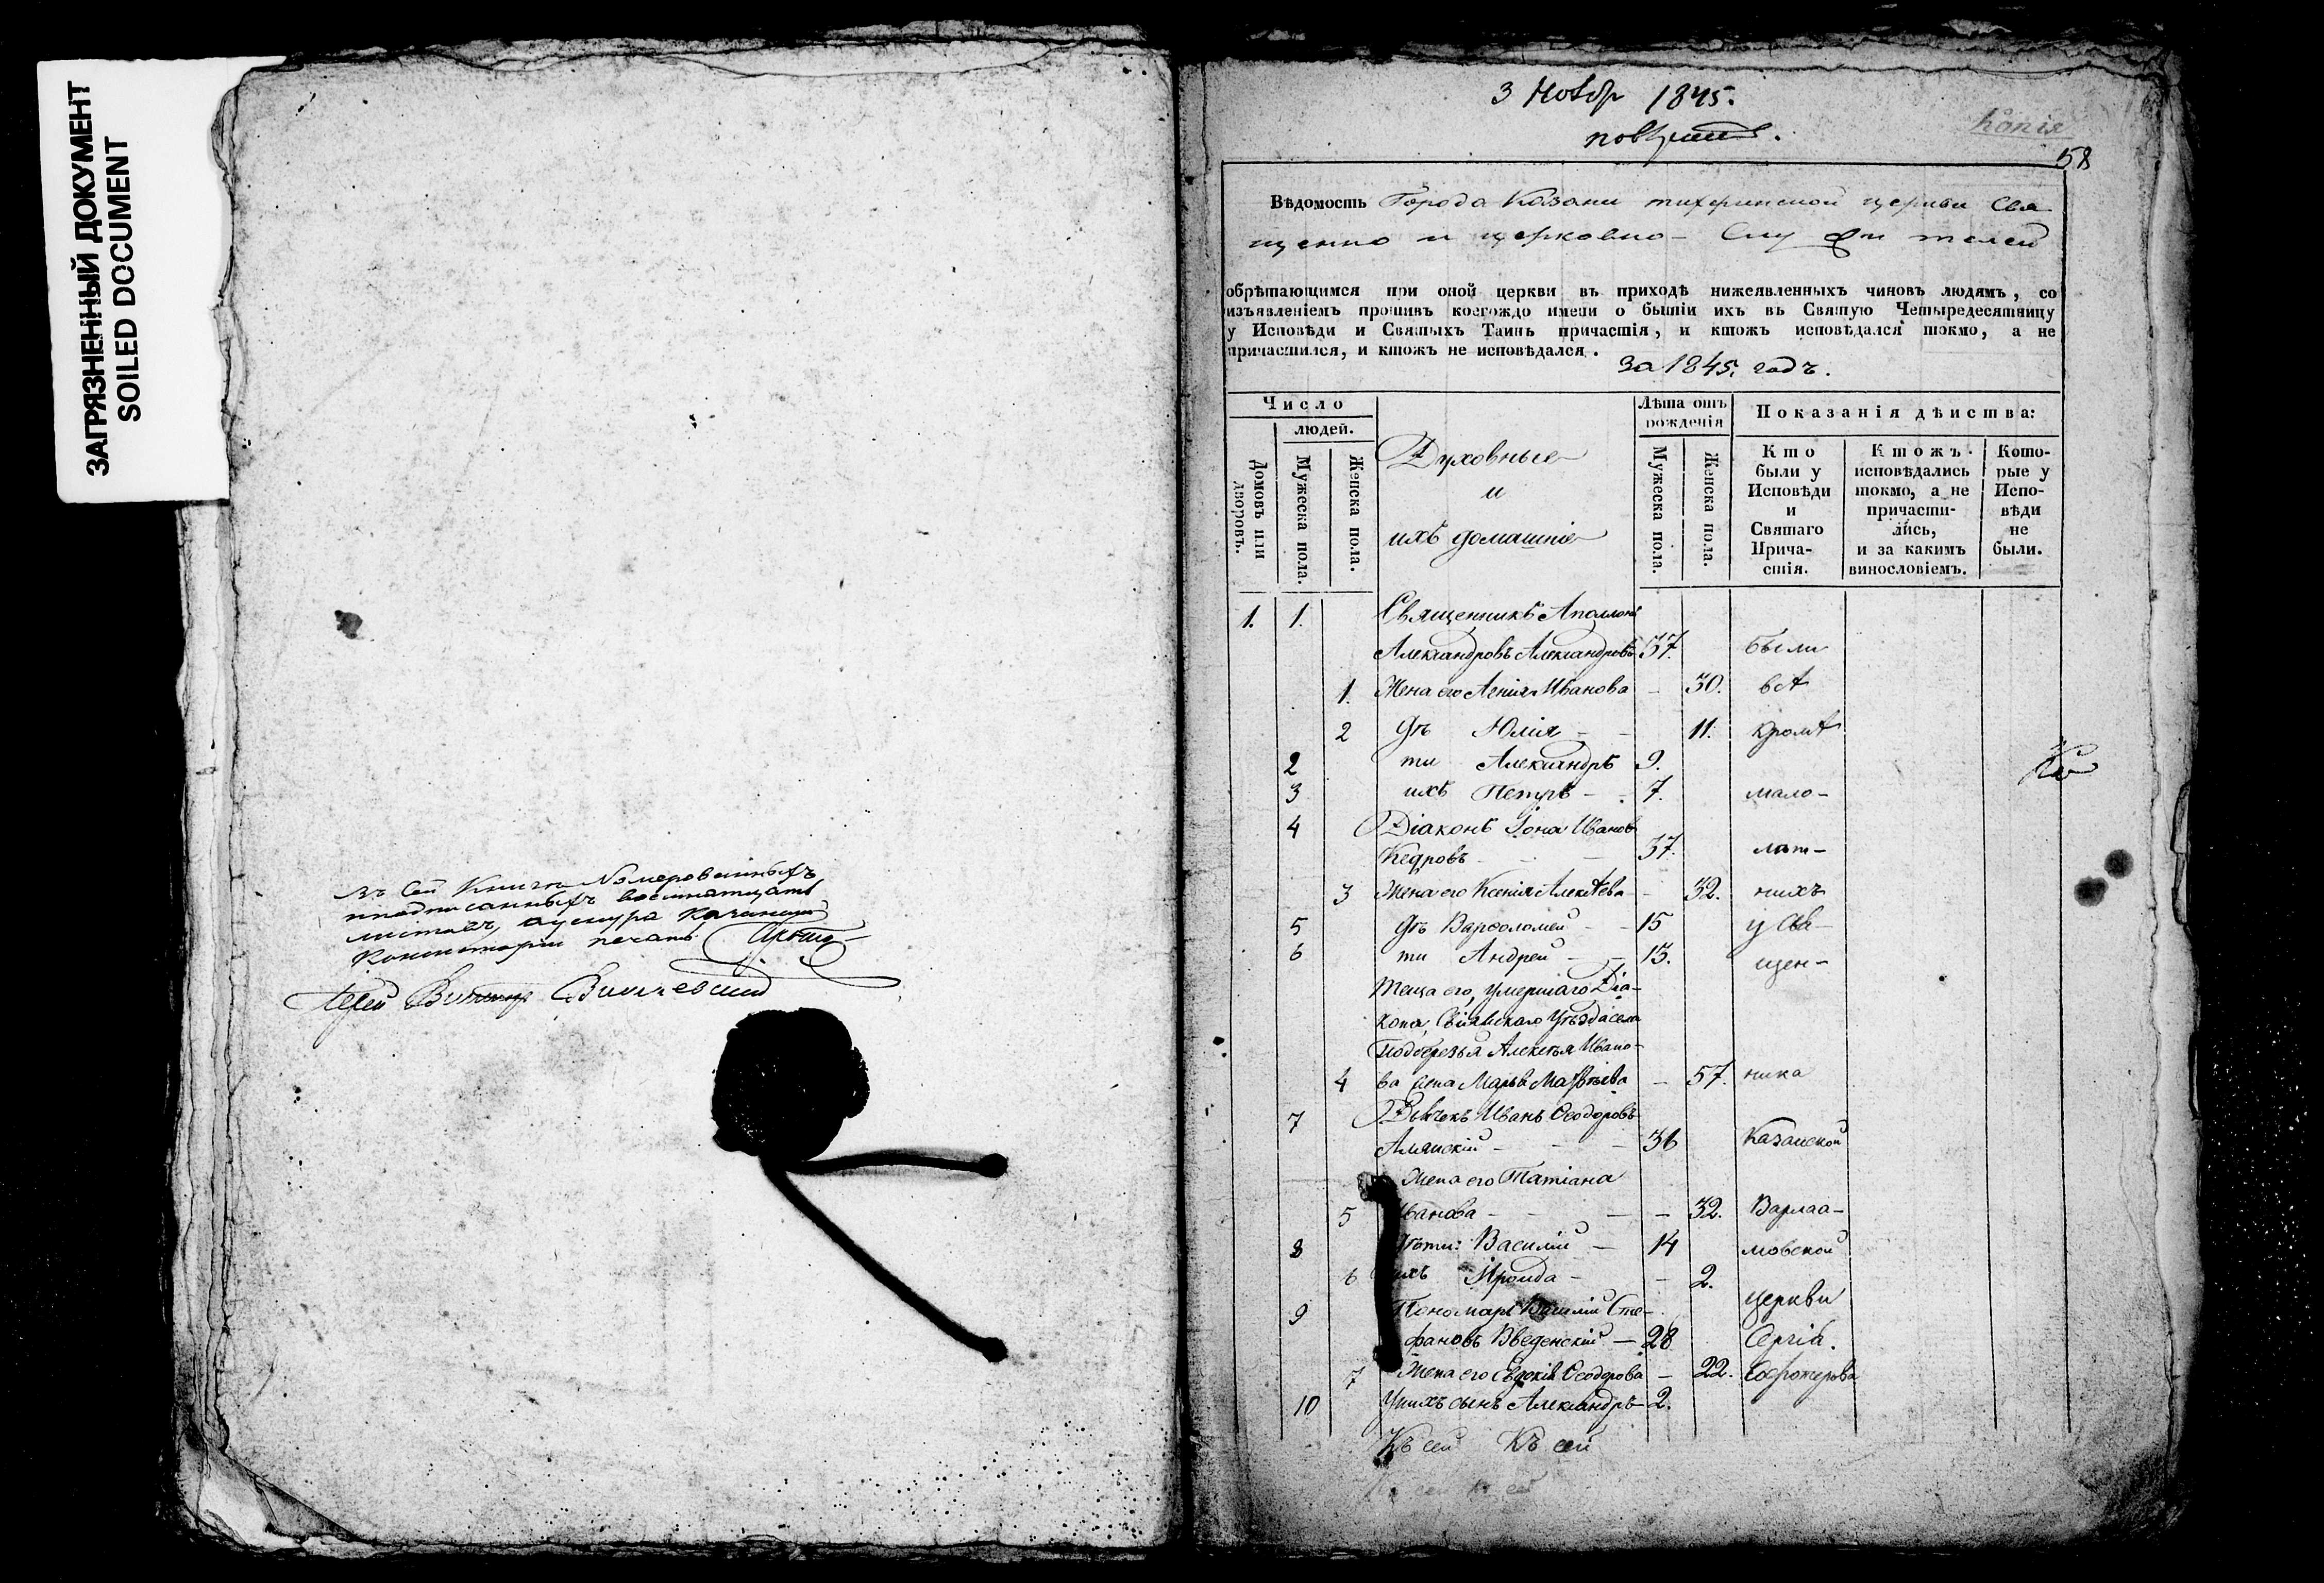 ЗАГРЯЗНЕННЫЙ ДОКУМЕНТ
SOILED DOCUMENT
Въ сей Книги Нумерованныхъ
листовъ,
Консисторіи печать
Іерей Викторъ Вишневскій
3 Ноябр 1845.
Копія
58
Вѣдомость Города Казани тихвинской церкви Свя
щенно и церковно- Служителей
обрѣтающимся при оной церкви въ приходѣ нижеявленныхъ чиновъ людямъ, со
изъявленіемъ противъ коегождо имени о бытіи ихъ въ Святую Четыредесятницу
у Исповѣди и Святыхъ Таинъ причастія, и ктожъ исповѣдался токмо, а не
причастился, и ктожъ не исповѣдался.
За 1845. годъ.
Число
людей.
Домовъ или дворовъ.
Мужеска пола.
Женска пола.
Духовные
и
ихъ домашніе
Лѣта отъ
рожденія
Мужеска пола.
Женска пола.
Показанія дѣйства:
Кто
были у
Исповѣди
и
Святаго
Прича-
стія.
Ктожъ
исповѣдались
токмо, а не
причасти-
лись,
и за какимъ
винословіемъ.
Кото-
рые у
Испо-
вѣди
не
были.
1. 1. Священникъ Аполлонъ
Александровъ Александровъ 37. были
1. Жена его Агнія Иванова - 30. всѣ
2 Дѣ Юлія - - 11. кромѣ
2 ти Александръ 9.
3 ихъ Петръ - - 7. мало-
4 Діаконъ Іона Ивановъ
Кедровъ - - - 37. лѣт-
3 Жена его Ксенія Алексѣева - 32. нихъ
5 Дѣ Варѳоломей - - 15 у Свя-
6 ти Андрей - - 13. щен-
Теща его, умершаго Діа-
кона, Свіяжскаго Уѣзда села
Подберезья Алексѣя Ивано-
4 ва жена Марѳа Матвѣева - 57. ника
7 Дьячекъ Иванъ Ѳеодоровъ
Алянскій - - - 36 Казанской
Жена его Татіана
5 Иванова - - - 32. Варлаа-
8 Дѣти: Василій - 14 мовской
6 ихъ Ираида - - 2. церкви
9 Пономарь Василій Сте-
фановъ Введенскій - 28 Сергія.
7 Жена его Евдокія Ѳеодорова - 22.
10 У нихъ сынъ Александръ - 2.
Къ сей Къ сей